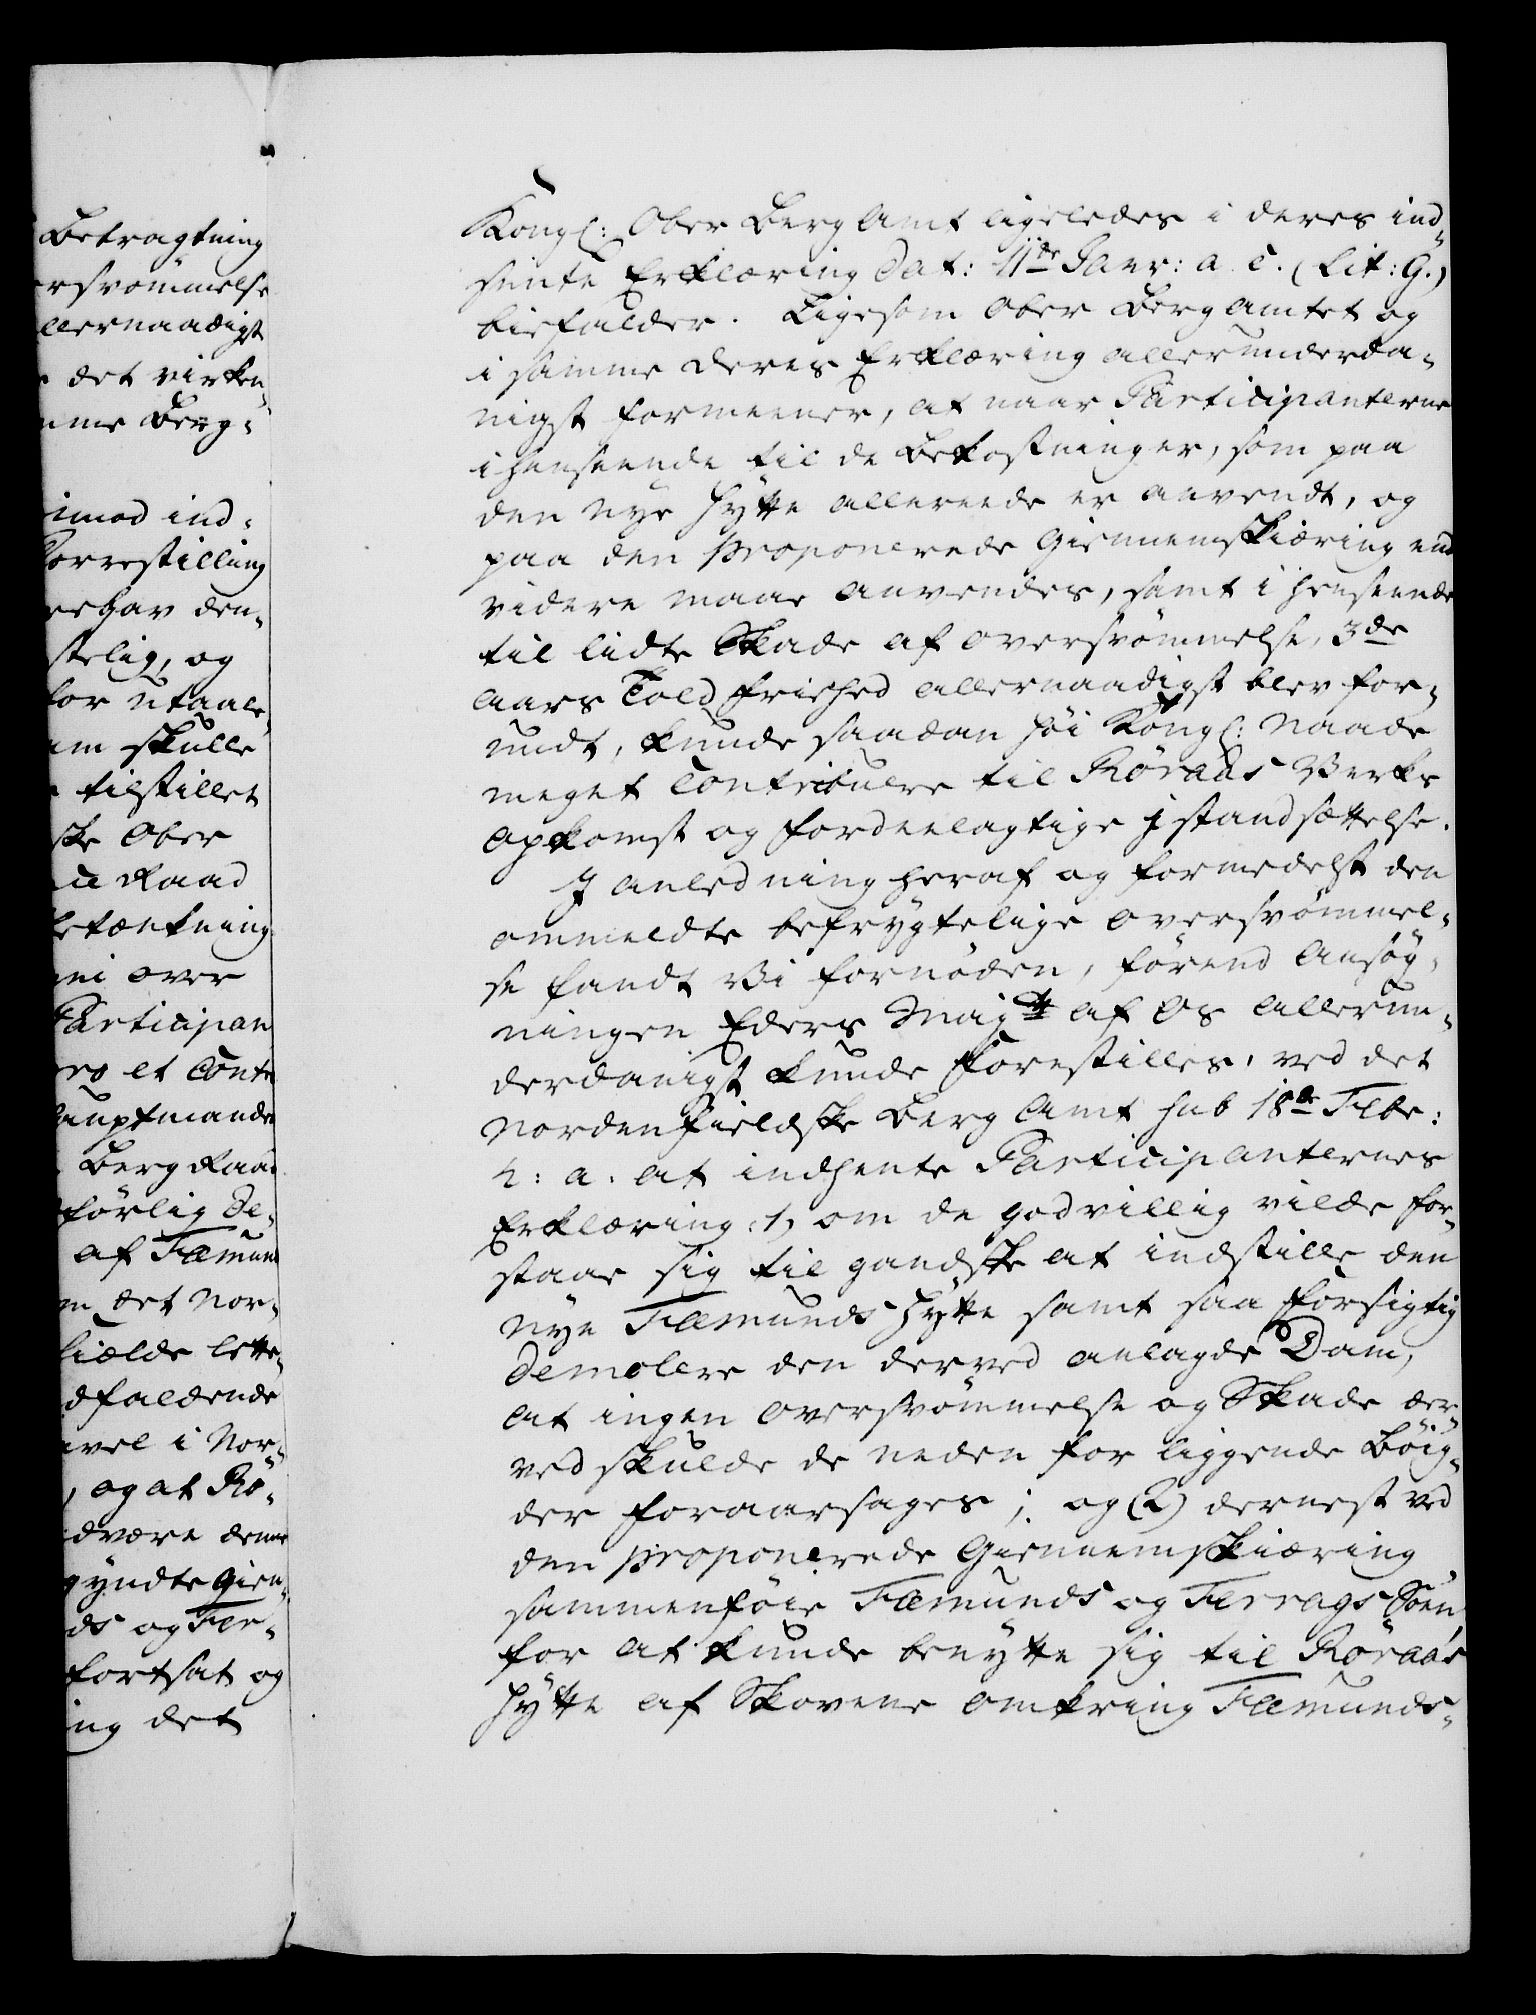 Betragtning
ersvömmelse
llernaadigst
det virken-
mme Berg-
imod ind-
Forestilling
rehav den-
stelig, og
for utaale-
am skulle
tilstillet
ske Ober
Raad
Betænkning
over
Participan
pro et Contr
hauptmanden
Berg Raad
förlig De-
af Fæmund
det Nor-
fieldske lette-
dfaldende
vel i Nor-
, og at Rö-
dvære denne
gyndte Gien-
ds og Fer-
fortsat og
ing det
Kongl: Ober Berg Amt ligeledes i deres ind-
sente Erklæring Dat: 11te Janr: a. c. (Lit: G.)
biefalder. Ligesom Ober Berg Amtet og
i samme deres Erklæring allerunderda-
nigst formeener, at naar Participanterne
i henseende til de Bekostninger, som paa
den nye Hytte allereede er anvendt, og
paa den proponerede Giennemskiæring end
videre maae anvendes, samt i henseende
til lidte Skade af oversvömmelse, 3de
aars Told frihed allernaadigst blev for-
undt, kunde saadan höi Kongl: Naade
meget contribuere til Røraas Verks
opkomst og fordeelagtige Jstandsættelse.
J anledning heraf og formedelst den
ommeldte befrygtelige oversvömmel-
se fandt Vi fornöden, förend Ansög-
ningen Eders Majtt af Os allerun-
derdanigst kunde forestilles, ved det
Nordenfieldske Berg Amt sub 18de Febr:
h: a. at indhente Participanternes
Erklæring: 1) om de godvillig vilde for-
staae sig til gandske at indstille den
nye Fæmunds Hytte samt saa forsigtig
Demolere den derved anlagde Dam,
at ingen oversvömmelse og Skade der-
ved skulde de neden for liggende Böig-
der foraarsages; og (2) dernest ved
den proponerede Giennemskiæring
sammenföie Fæmunds og Ferrags Söen,
for at kunde benytte sig til Røraas
Hytte af Skovene omkring Fæmunds-